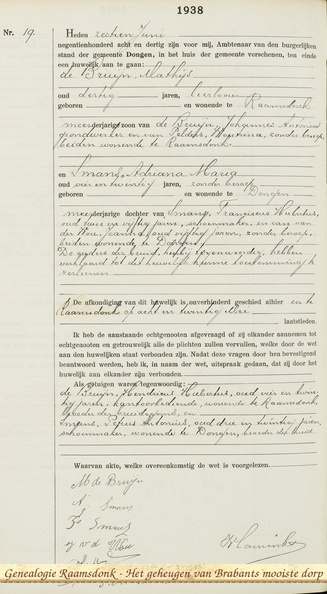 1938
Nr. 19.
Heden zestien Juni
negentienhonderd acht en dertig zijn voor mij, Ambtenaar van den burgerlijken
stand der gemeente Dongen, in het huis der gemeente verschenen, ten einde
een huwelijk aan te gaan:
de Bruijn, Mathijs
oud dertig jaren,
geboren en wonende te Raamsdonk
meerderjarige zoon van de Bruijn, Johannes Antonius
grondwerker en van Peldrs, zonder beroep,
beiden wonende te Raamsdonk.
en Smans, Adriana Maria
oud vier en twintig jaren, zonder beroep
geboren en wonende te Dongen
meerderjarige dochter van Smans, Franciscus Hubertus,
oud en vijftig jaren, schoenmaker, en van van
der Wou, Joanna, oud vijftig jaren, zonder beroep,
beiden wonende te Dongen.
De ouders der bruid, hierbij tegenwoordig, hebben
verklaard tot dit huwelijk hunne toestemming te
verleenen
De afkondiging van dit huwelijk is onverhinderd geschied alhier en te
Raamsdonk op acht en twintig Mei
laatstleden.
Ik heb de aanstaande echtgenooten afgevraagd of zij elkander aannemen tot
echtgenooten en getrouwelijk alle de plichten zullen vervullen, welke door de wet
aan den huwelijken staat verbonden zijn. Nadat deze vragen door hen bevestigend
beantwoord werden, heb ik, in naam der wet, uitspraak gedaan, dat zij door het
huwelijk aan elkander zijn verbonden.
Als getuigen waren tegenwoordig:
de Bruijn, Hendricus Hubertus, oud vier en twin-
tig jaren, wonende te Raamsdonk,
broeder des bruidegoms, en
Smans, Petrus Antonius, oud drie en twintig jaren,
schoenmaker, wonende te Dongen, broeder der bruid.
Waarvan akte, welke overeenkomstig de wet is voorgelezen.
M de Bruijn
A. Smans
Fr Smans
J v d Wou
Genealogie Raamsdonk - Het geheugen van Brabants mooiste dorp